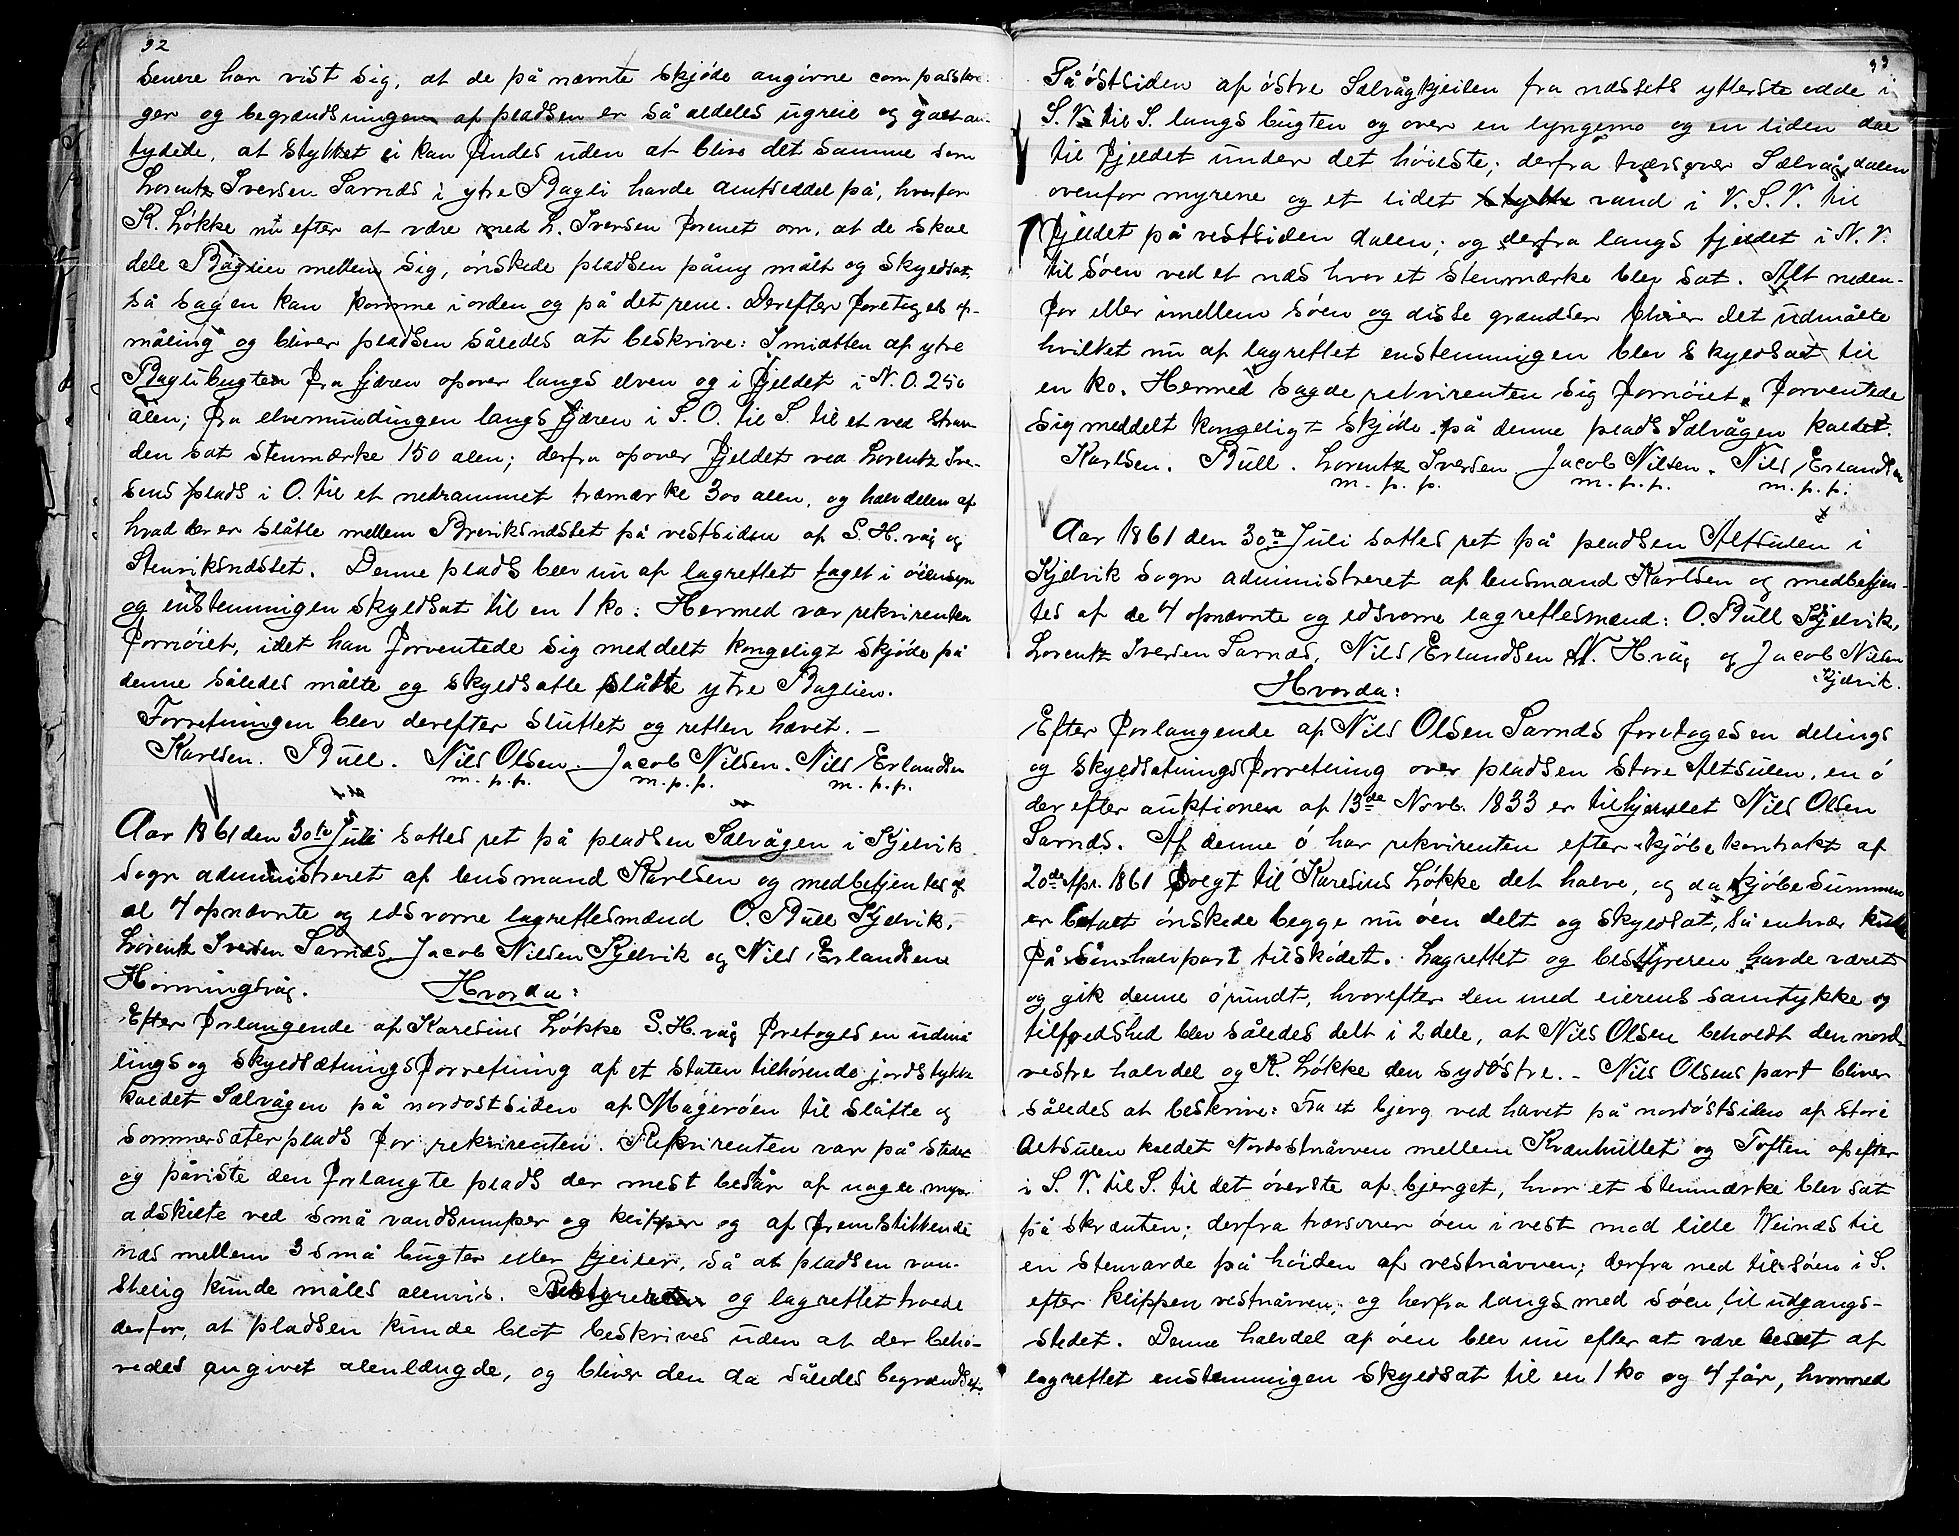 32
senere har vist sig, at de på nævnte skjøde angivne compasstre-
ger og begrændsningen af pladsen er så aldeles ugreie og galt an-
tydede, at stykket ei kan findes uden at blive det samme som
Lorentz Iversen Sarnæs i ytre Bagli havde amtseddel på, hvorfor
K. Løkke nu efter at være med L. Iversen forenet om, at de skal
dele Baglien mellem sig, ønskede pladsen påny målt og skyldsat,
så sagen kan komme i orden og på det rene. Derefter foretoges op-
måling og bliver pladsen således at beskrive: I midtten af ytre
Baglibugten fra fjæren opover langs elven og i fjeldet i N.O. 250
alen; fra elvemundingen langs fjæren i S.O. til S. til et ved stran-
den sat stenmærke 150 alen; derfra opover fjeldet ved Lorentz Iver-
sens plads i O. til et nedrammet træmærke 300 alen, og halvdelen af
hvad der er slåtte mellem Breviksnæstet på vestsiden af S. H. våg og
Stenviksnæstet. Denne plads blev nu af lagrettet taget i øiensyn
og enstemmigen skyldsat til en 1 ko: Hermed var rekvirenten
fornøiet, idet han forventede sig meddelt kongeligt skjøde på
denne således målte og skyldsatte slåtte ytre Baglien.
Forretningen blev derefter sluttet og retten hævet. –
Karlsen. Bull. Nils Olsen. Jacob Nilsen. Nils Erlandsen
m. p. p. m. p. p. m. p. p.
Aar 1861 den 30te Juli sattes ret på pladsen Sælvågen i Kjelvik
sogn administreret af lensmand Karlsen og medbetjentes af
de 4 opnævnte og edsvorne lagrettesmænd O. Bull Kjelvik,
Lorentz Iversen Sarnæs, Jacob Nilsen Kjelvik og Nils Erlandsen
Honningsvåg. Hvorda:
Efter forlangende af Karesius Løkke S. H. våg foretoges en udmå-
lings og skyldsætningsforretning af et staten tilhørende jordstykke
kaldet Sælvågen på nordostsiden af Magerøen til slåtte og
sommersæterplads for rekvirenten. Rekvirenten var på stedet
og påviste den forlangte plads der mest består af nogle myrer
adskilte ved små vandsumper og klipper og af fremstikkende
næs mellem 3 små bugter eller kjeiler, så at pladsen van-
skelig kunde måles alenvis. Bestyreren og lagrettet troede
derfor, at pladsen kunde blot beskrives uden at der behø-
vedes angivet alenlængde, og bliver den da således begrændset:
33
På østsiden af østre Sælvågkjeilen fra næssets ytterste odde i
S. V. til S. langs bugten og over en lyngemo og en liden dal
til fjeldet under det høieste; derfra tværsover Sælvågdalen
ovenfor myrene og et lidet vand i V. S. V. til
fjeldet på vestsiden dalen; og derfra langs fjeldet i N. V.
til søen ved et næs hvor et stenmærke blev sat. Alt neden-
for eller imellem søen og disse grændser bliver det udmålte
hvilket nu af lagrettet enstemmigen blev skyldsat til
en ko. Hermed sagde rekvirenten sig fornøiet, forventede
sig meddelt kongeligt skjøde på denne plads Sælvågen kaldet.
Karlsen. Bull. Lorentz Iversen Jacob Nilsen. Nils Erlandsen
m. p. p. m. p. p. m. p. p.
Aar 1861 den 30te Juli sattes ret på pladsen Altsulen i
Kjelvik sogn administreret af lensmand Karlsen og medbetjen-
tes af de 4 opnævnte og edsvorne lagrettesmænd: O. Bull Kjelvik,
Lorentz Iversen Sarnæs, Nils Erlandsen N. H. våg og Jacob Nilsen
Kjelvik.
Hvorda:
Efter forlangende af Nils Olsen Sarnæs foretoges en delings
og skyldsætningsforretning over pladsen store Altsulen, en ø
der efter auktionen af 13de Novb. 1833 er tilhjemlet Nils Olsen
Sarnæs. Af denne ø har rekvirenten efter kjøbekontrakt af
20de Apr. 1861 solgt til Karesius Løkke det halve, og da kjøbesummen
er betalt ønskede begge nu øen delt og skyldsat, så enhver kunde
få sin halvpart tilskødet. Lagrettet og bestyreren havde været
og gik denne ø rundt, hvorefter den med eierens samtykke og
tilfredshed blev således delt i 2 dele, at Nils Olsen beholdt den nord-
vestre halvdel og K. Løkke den sydøstre. – Nils Olsens part bliver
således at beskrive: Fra et bjerg ved havet på nordøstsiden af store
Altsulen kaldet Nordostnåvven mellem Kvanhullet og Toften opefter
i S. V. til S. til det øverste af bjerget, hvor et stenmærke blev sat
på skrænten; derfra tværsover øen i vest mod lille Weinæs til
en stenvarde på høiden af vestnåvven; derfra ned til søen i S.
efter klippen vestnåvven, og herfra langs med søen til udgangs-
stedet. Denne halvdel af øen blev nu efter at være beset af
lagrettet enstemmigen skyldsat til en 1 ko og 4 får, hvormed